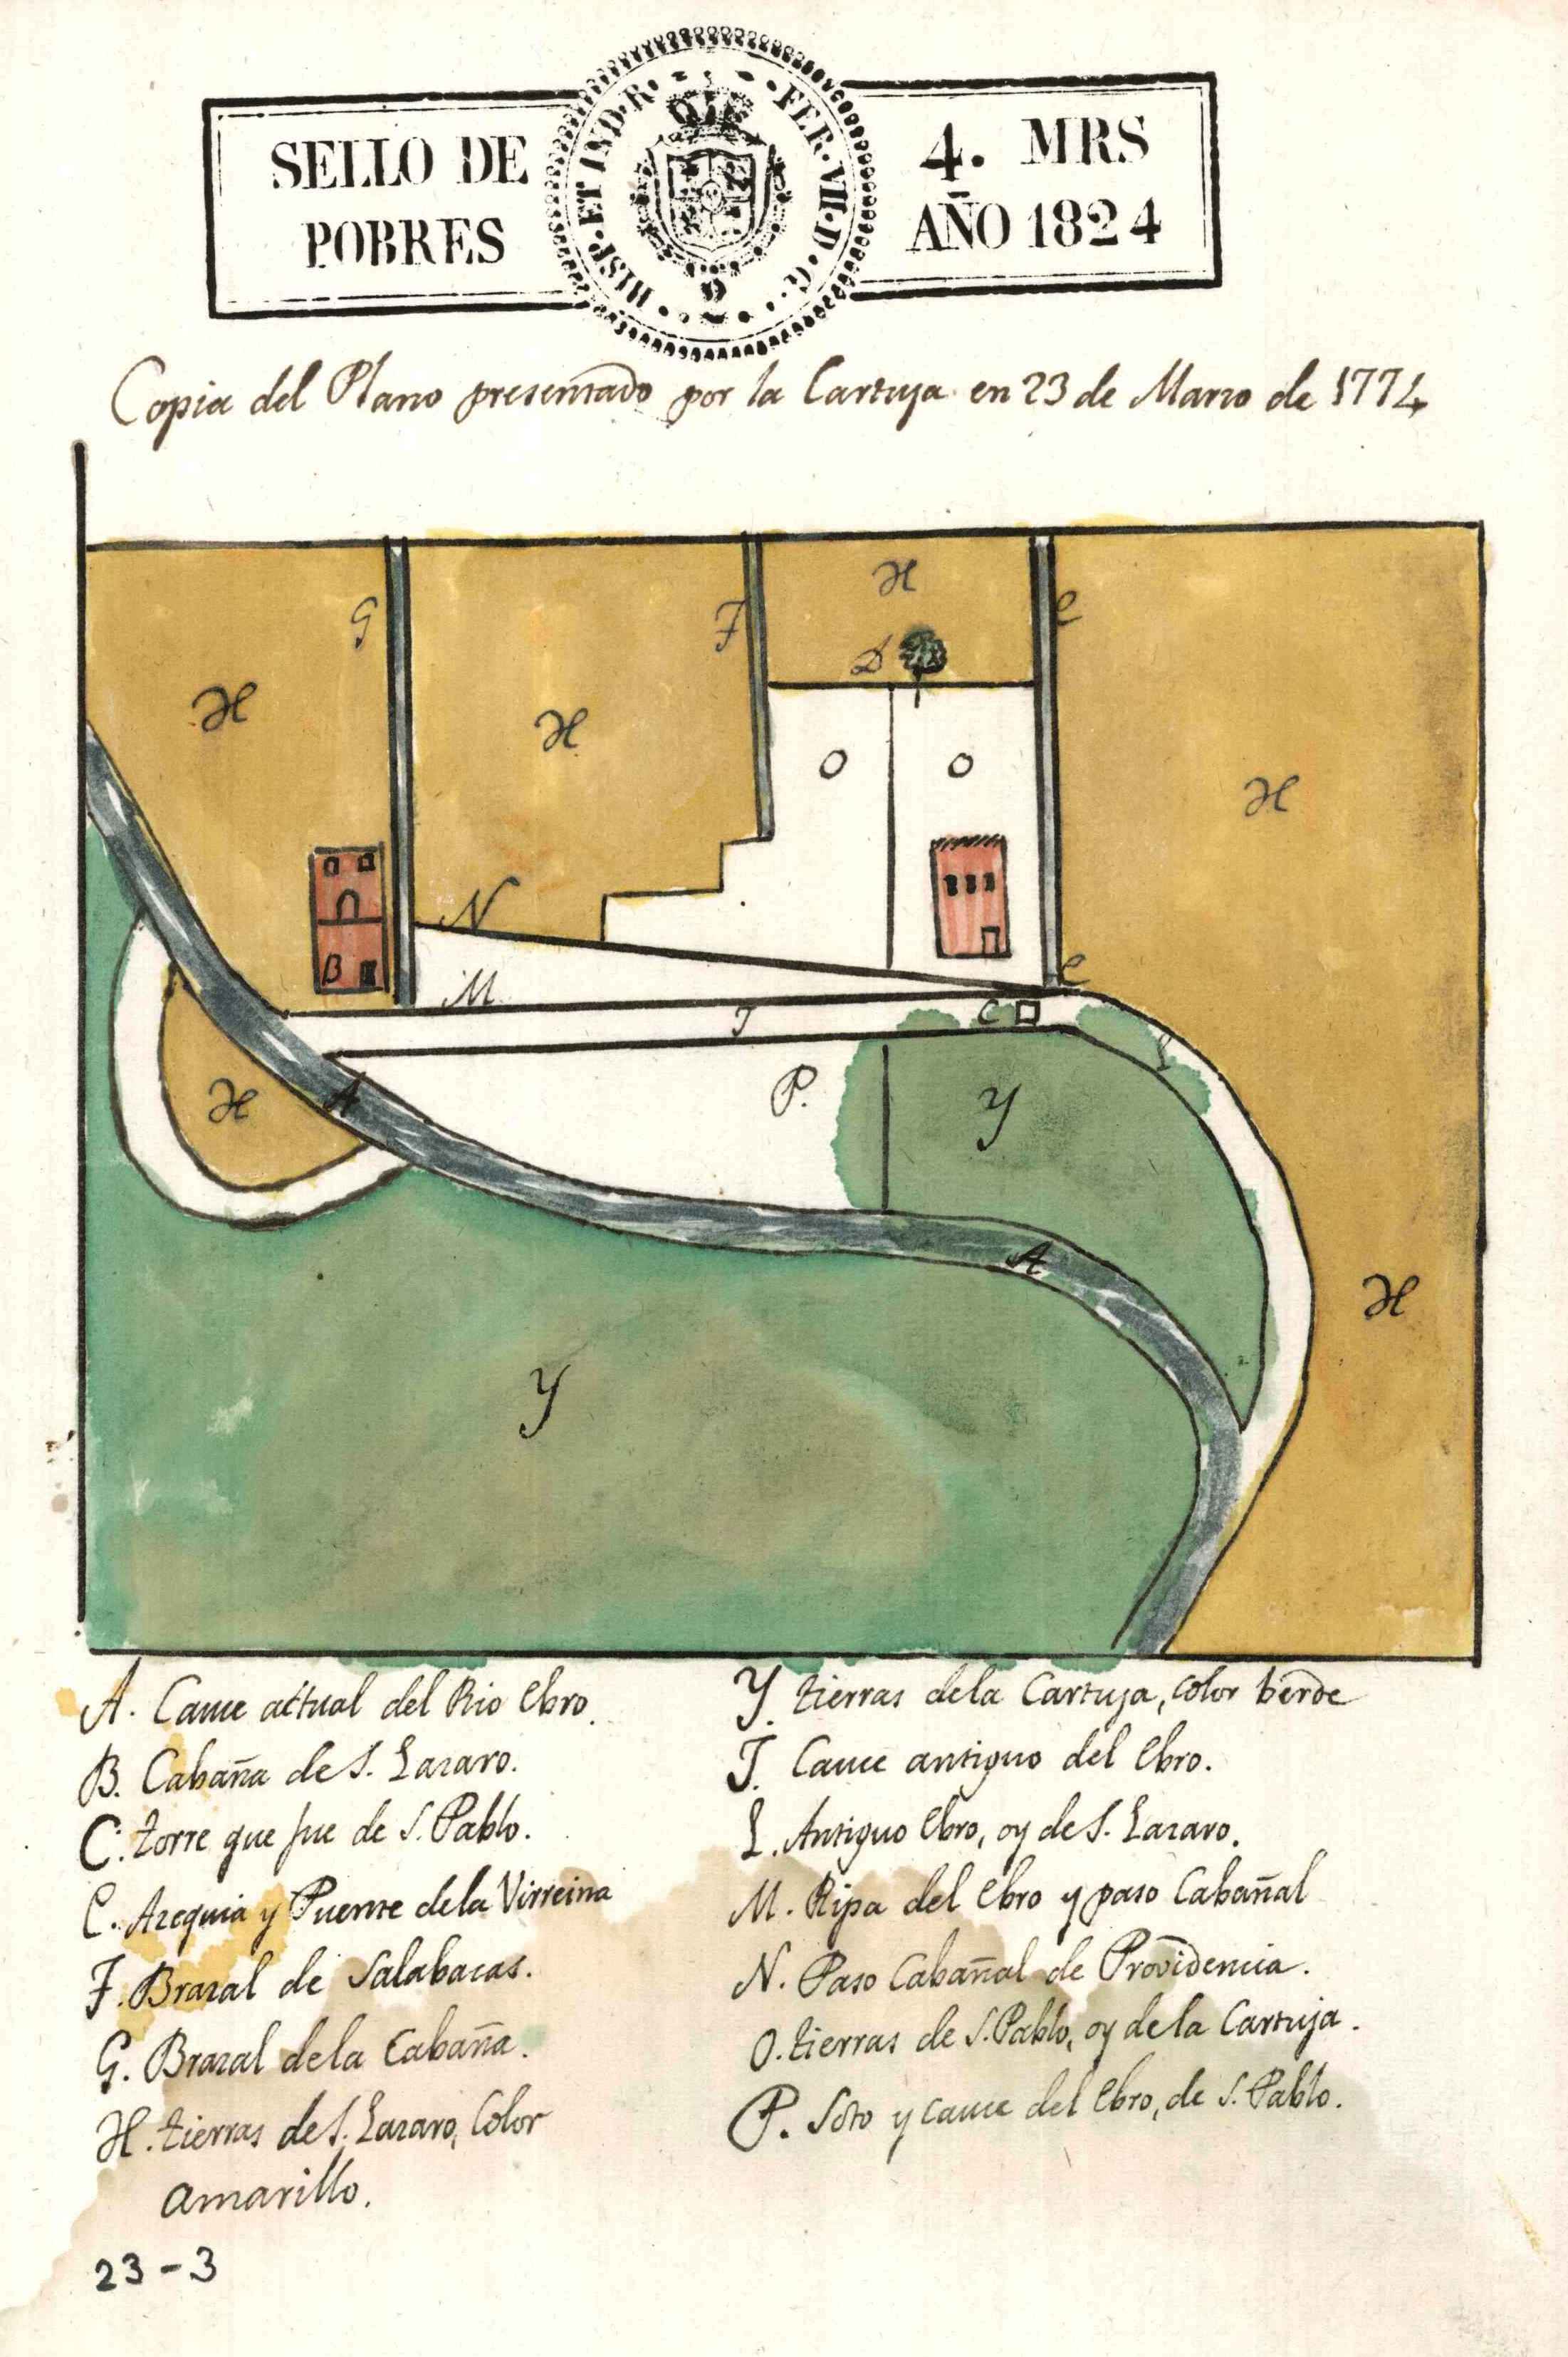 SELLO DE
POBRES
HISP·ET IND·R·
·FER·VII·D·G·
4. MRS
AÑO 1824
Copia del Plano presentado por la Cartuja en 23 de Marzo de 1774
H
G
F
E
D
H
H
O
O
H
B
N
M
E
J
C
L
A
H
P.
Y
A
H
Y
A. Cauce actual del Rio Ebro.
B. Cabaña de S. Lazaro.
C. torre que fue de S. Pablo.
E. Azequia y Puente dela Virreina
F. Brazal de Salabacas.
G. Brazal dela Cabaña.
H. tierras de S. Lazaro, Color
amarillo.
23-3
Y. tierras dela Cartuja, color berde
J. Cauce antiguo del Ebro.
L. Antiguo Ebro, oy de S. Lazaro.
M. Ripa del Ebro y paso Cabañal
N. Paso Cabañal de Providencia.
O. tierras de S. Pablo, oy dela Cartuja.
P. Soto y cauce del Ebro, de S. Pablo.